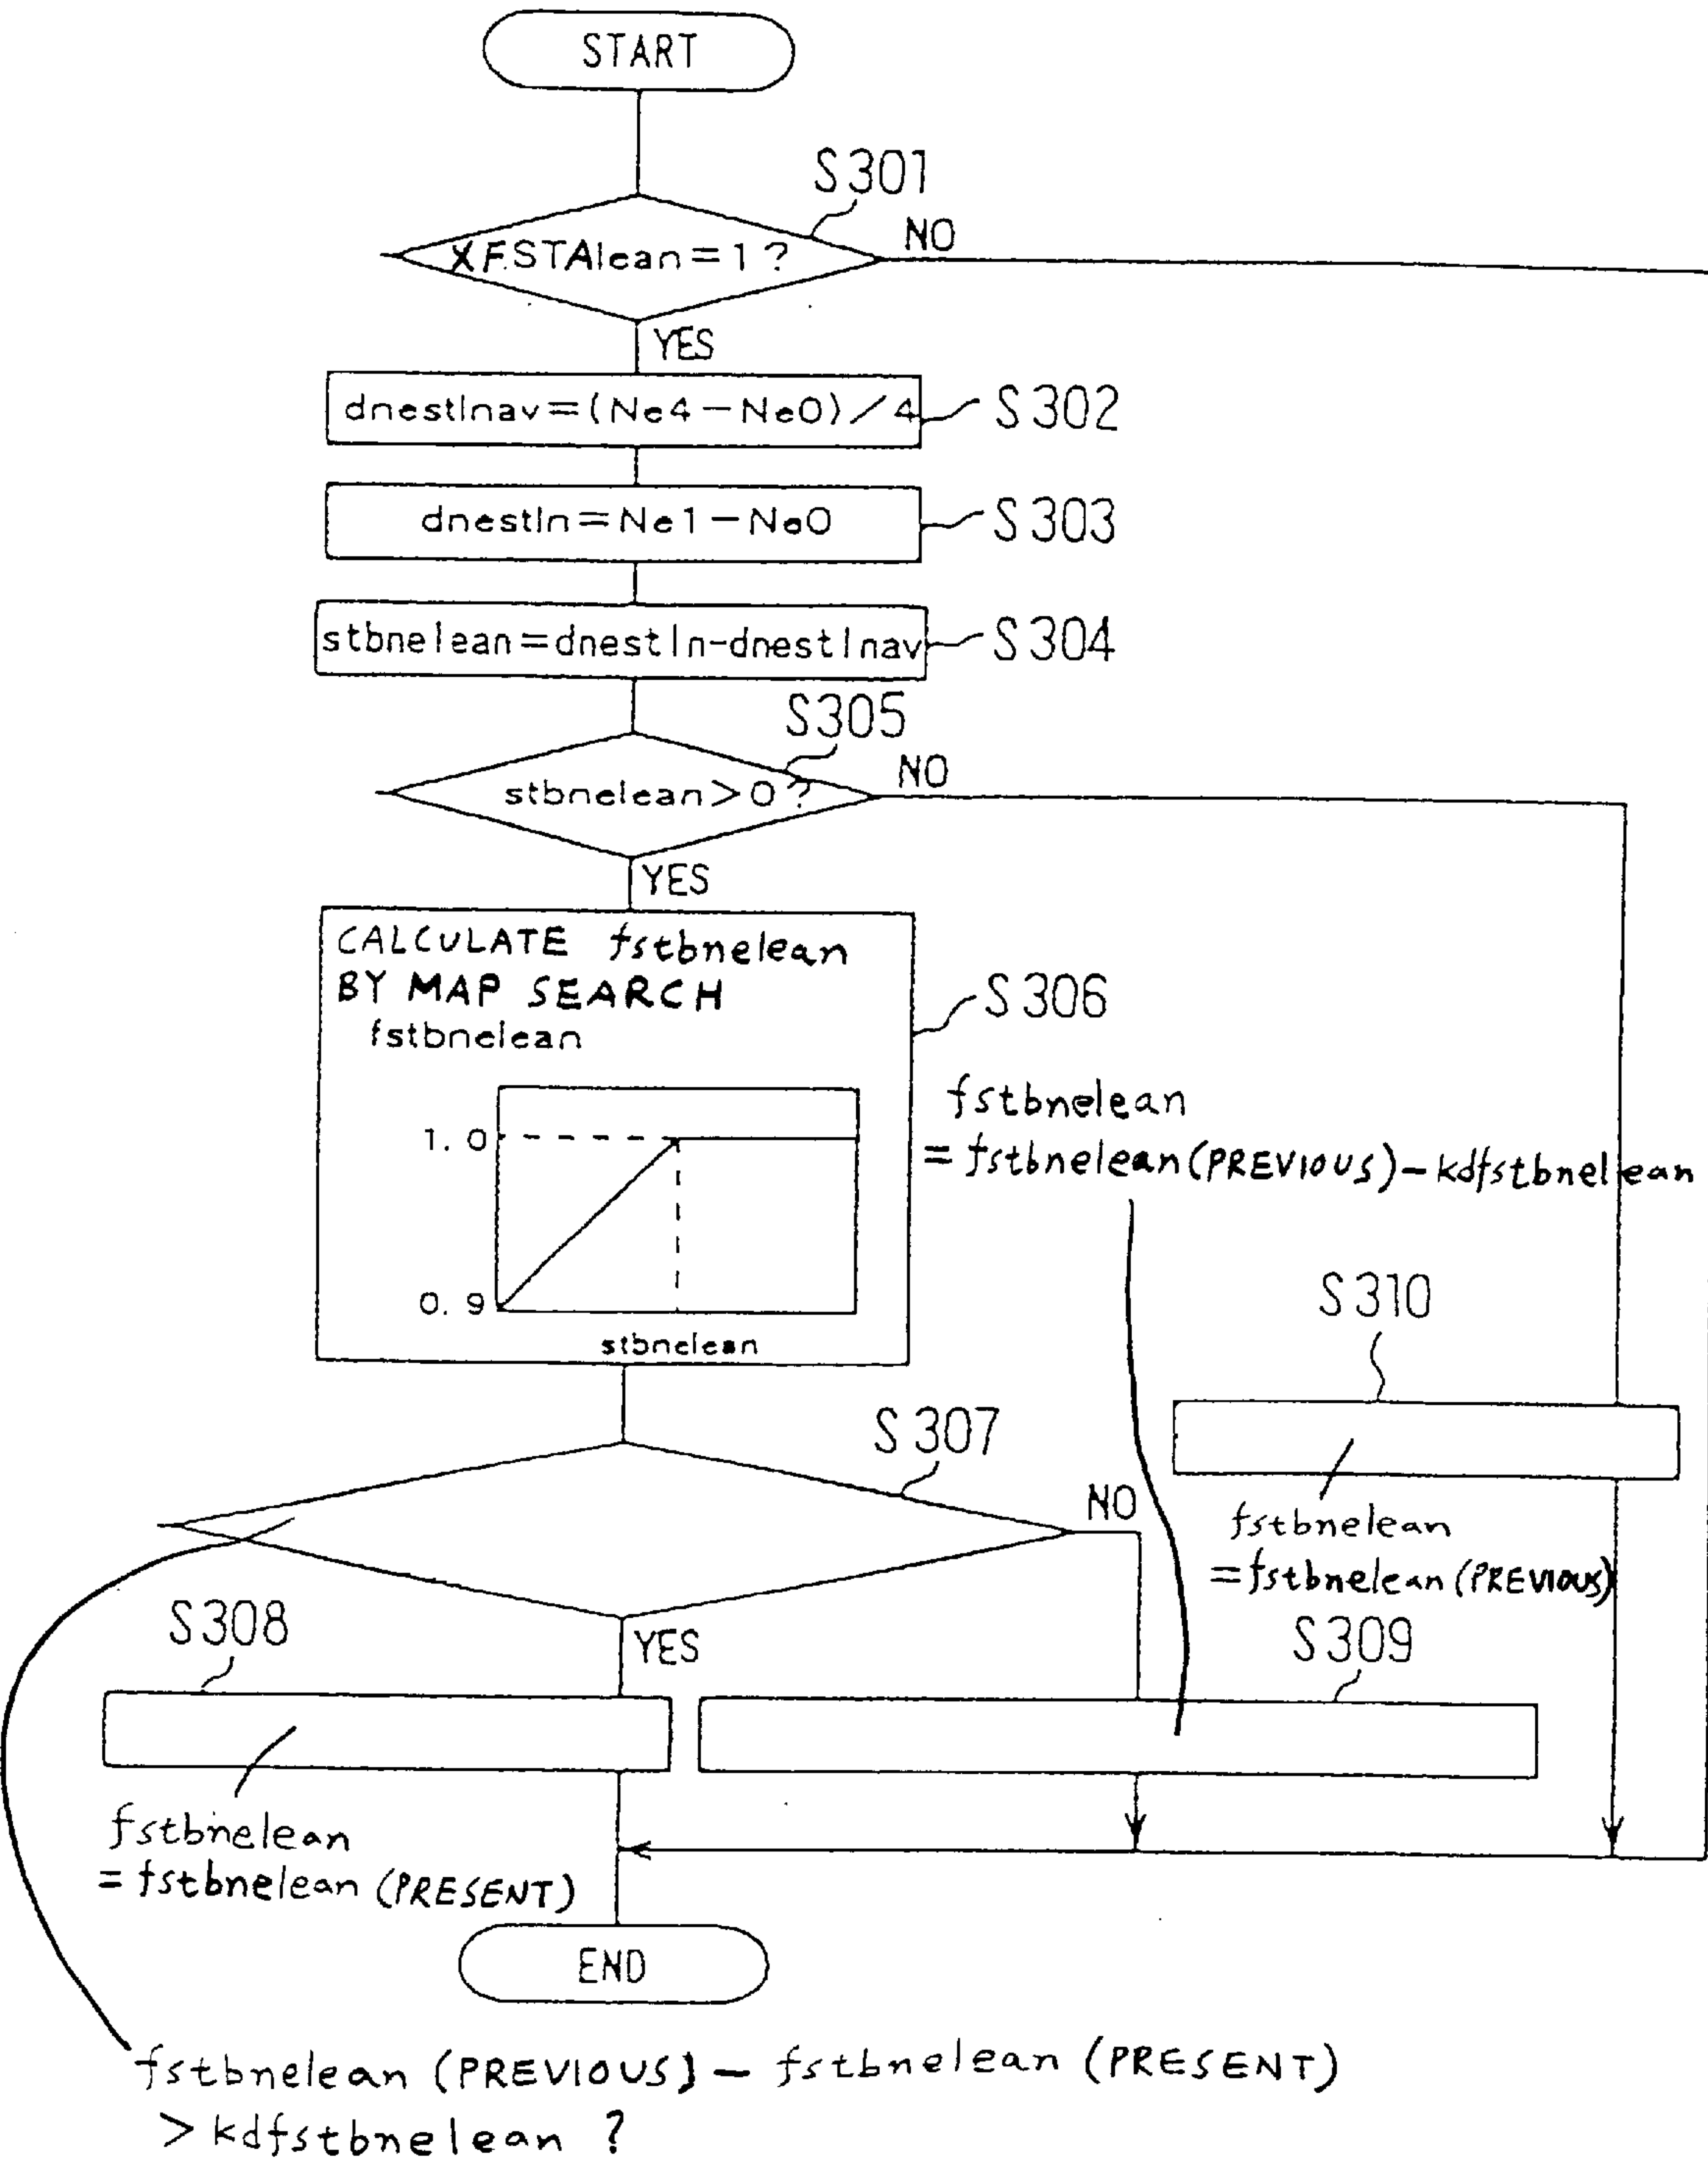 START
S301
XFSTAlean=1?
NO
YES
dnestlnav=(Ne4-Ne0)/4
S302
dnestln=Ne1-Ne0
S303
stbnelean=dnestln-dnestlnav
S304
S305
stbnelean>0?
NO
YES
CALCULATE fstbnelean
BY MAP SEARCH
fstbnelean
1.0
0.9
stbnelean
S306
fstbnelean
=fstbnelean(PREVIOUS)-kdfstbnelean
S310
fstbnelean
=fstbnelean(PREVIOUS)
S307
NO
YES
S308
S309
fstbnelean
=fstbnelean(PRESENT)
END
fstbnelean(PREVIOUS)-fstbnelean(PRESENT)
>kdfstbnelean?